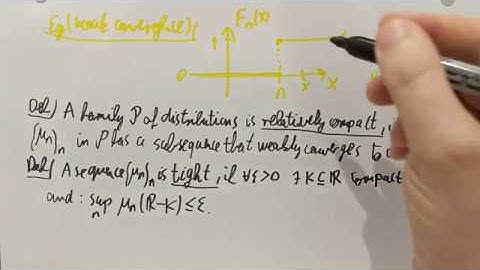 Eg (weak convergence):
Fn(x)
1
0 n x x
Def/ A family P of distributions is relatively compact, i
(μn)n in P has a subsequence that weakly converges to
Def/ A sequence (μn)n is tight, if ∀ε>0 ∃ K⊆ℝ compact
and: sup μn(ℝ-K) ≤ ε.
n